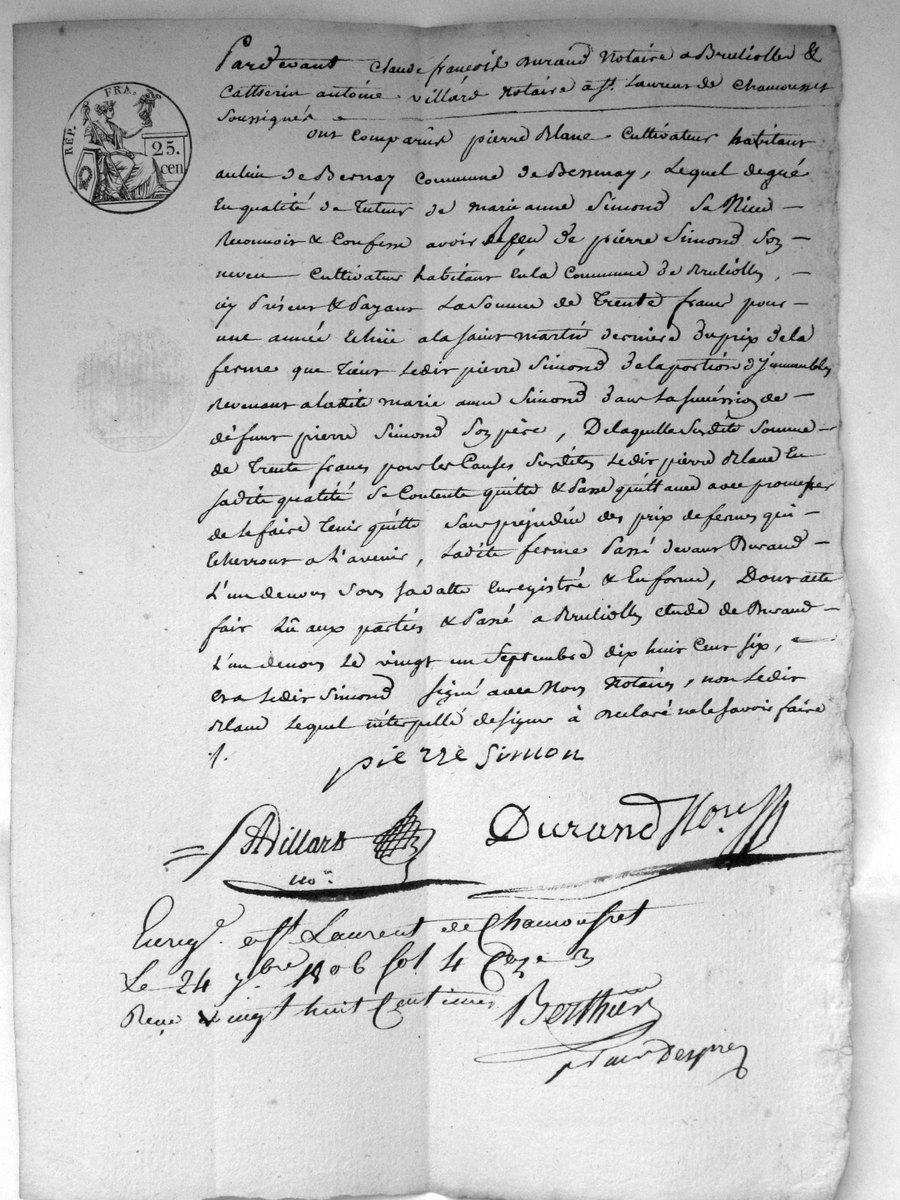 RÉP. FRA.
25. cen
Pardevant Claude françois Durand Notaire a Brullioles &
Catherin antoine Villard Notaire à St. Laurent de Chamousset
Soussignés
ont comparûs pierre Blanc Cultivateur habitant
au lieu de Bernay Commune de Bessenay, Lequel de gré
En qualité de Tuteur de marie anne Simond Sa Niece
Reconnoit & Confesse avoir Reçu de pierre Simond Son
neveu Cultivateur habitant En la Commune de Brullioles,
icy Présent & Payant La Somme de Trente francs pour
une année Echüe a la Saint martin derniere du prix de la
ferme que Tient Ledit pierre Simond de la portion d'Immeubles
Revenant a ladite marie anne Simond dans La Succession de
défunt pierre Simond Son père, De laquelle Susdite Somme
de Trente francs pour les Causes Susdites Ledit pierre Blanc En
sadite qualité Se Contente quitte & Passe quittance avec promesse
de le faire Tenir quitte Sans prejudice des prix de fermes qui
Echerront a L'avenir, Ladite ferme Passé devant Durand
L'un de nous Sous Sa datte Enregistré & En forme, Dont acte
fait Lû aux parties & Passé a Brullioles etude de Durand
L'un de nous Le vingt un Septembre dix huit Cent Six,
Et a Ledit Simond Signé avec Nous Notaires, non Ledit
Blanc Lequel interpellé de signer à Declaré ne le Savoir faire
/.
pierre Simon
Villard Durand Nore
no.re
Enregé. a St Laurent de Chamousset
Le 24 7bre 1806 fol 4 Case 3
Reçu vingt huit Centimes
Berthier